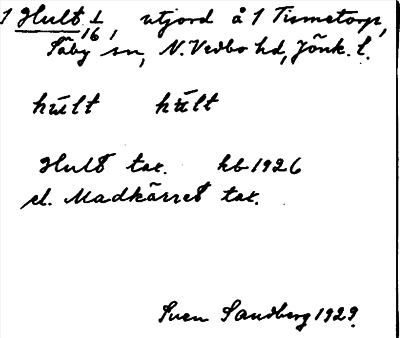 1 Hult 1/16, utjord å 1 Tismetorp,
Säby sn, N. Vedbo hd, Jönk. l.
hult hult
Hult tax. hb 1926
el. Madkärret tax.
Sven Sandberg 1929.